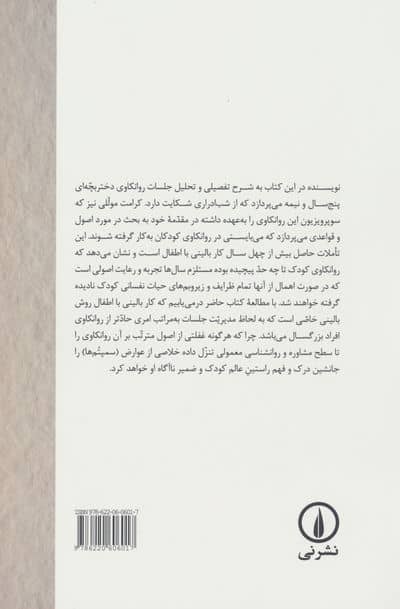 نویسنده در این کتاب به شرح تفصیلی و تحلیل جلسات روانکاوی دختربچّه‌ای
پنج‌سال و نیمه می‌پردازد که از شب‌ادراری شکایت دارد. کرامت موللّی نیز که
سوپرویزیون این روانکاوی را به‌عهده داشته در مقدّمهٔ خود به بحث در مورد اصول
و قواعدی می‌پردازد که می‌بایستی در روانکاوی کودکان به‌کار گرفته شوند. این
تأملات حاصل بیش از چهل سال کار بالینی با اطفال است و نشان می‌دهد که
روانکاوی کودک تا چه حدّ پیچیده بوده مستلزم سال‌ها تجربه و رعایت اصولی است
که در صورت اهمال از آنها تمام ظرایف و زیروبم‌های حیات نفسانی کودک نادیده
گرفته خواهند شد. با مطالعهٔ کتاب حاضر درمی‌یابیم که کار بالینی با اطفال روش
بالینی خاصّی است که به لحاظ مدیریّت جلسات به‌مراتب امری حادّتر از روانکاوی
افراد بزرگسال می‌باشد. چرا که هرگونه غفلتی از اصول مترتّب بر آن روانکاوی را
تا سطح مشاوره و روانشناسی معمولی تنزّل داده خلاصی از عوارض (سمپتُم‌ها) را
جانشین درک و فهم راستینِ عالم کودک و ضمیر ناآگاه او خواهد کرد.
ISBN 978-622-06-0601-7
9 786220 606017
نشرنی